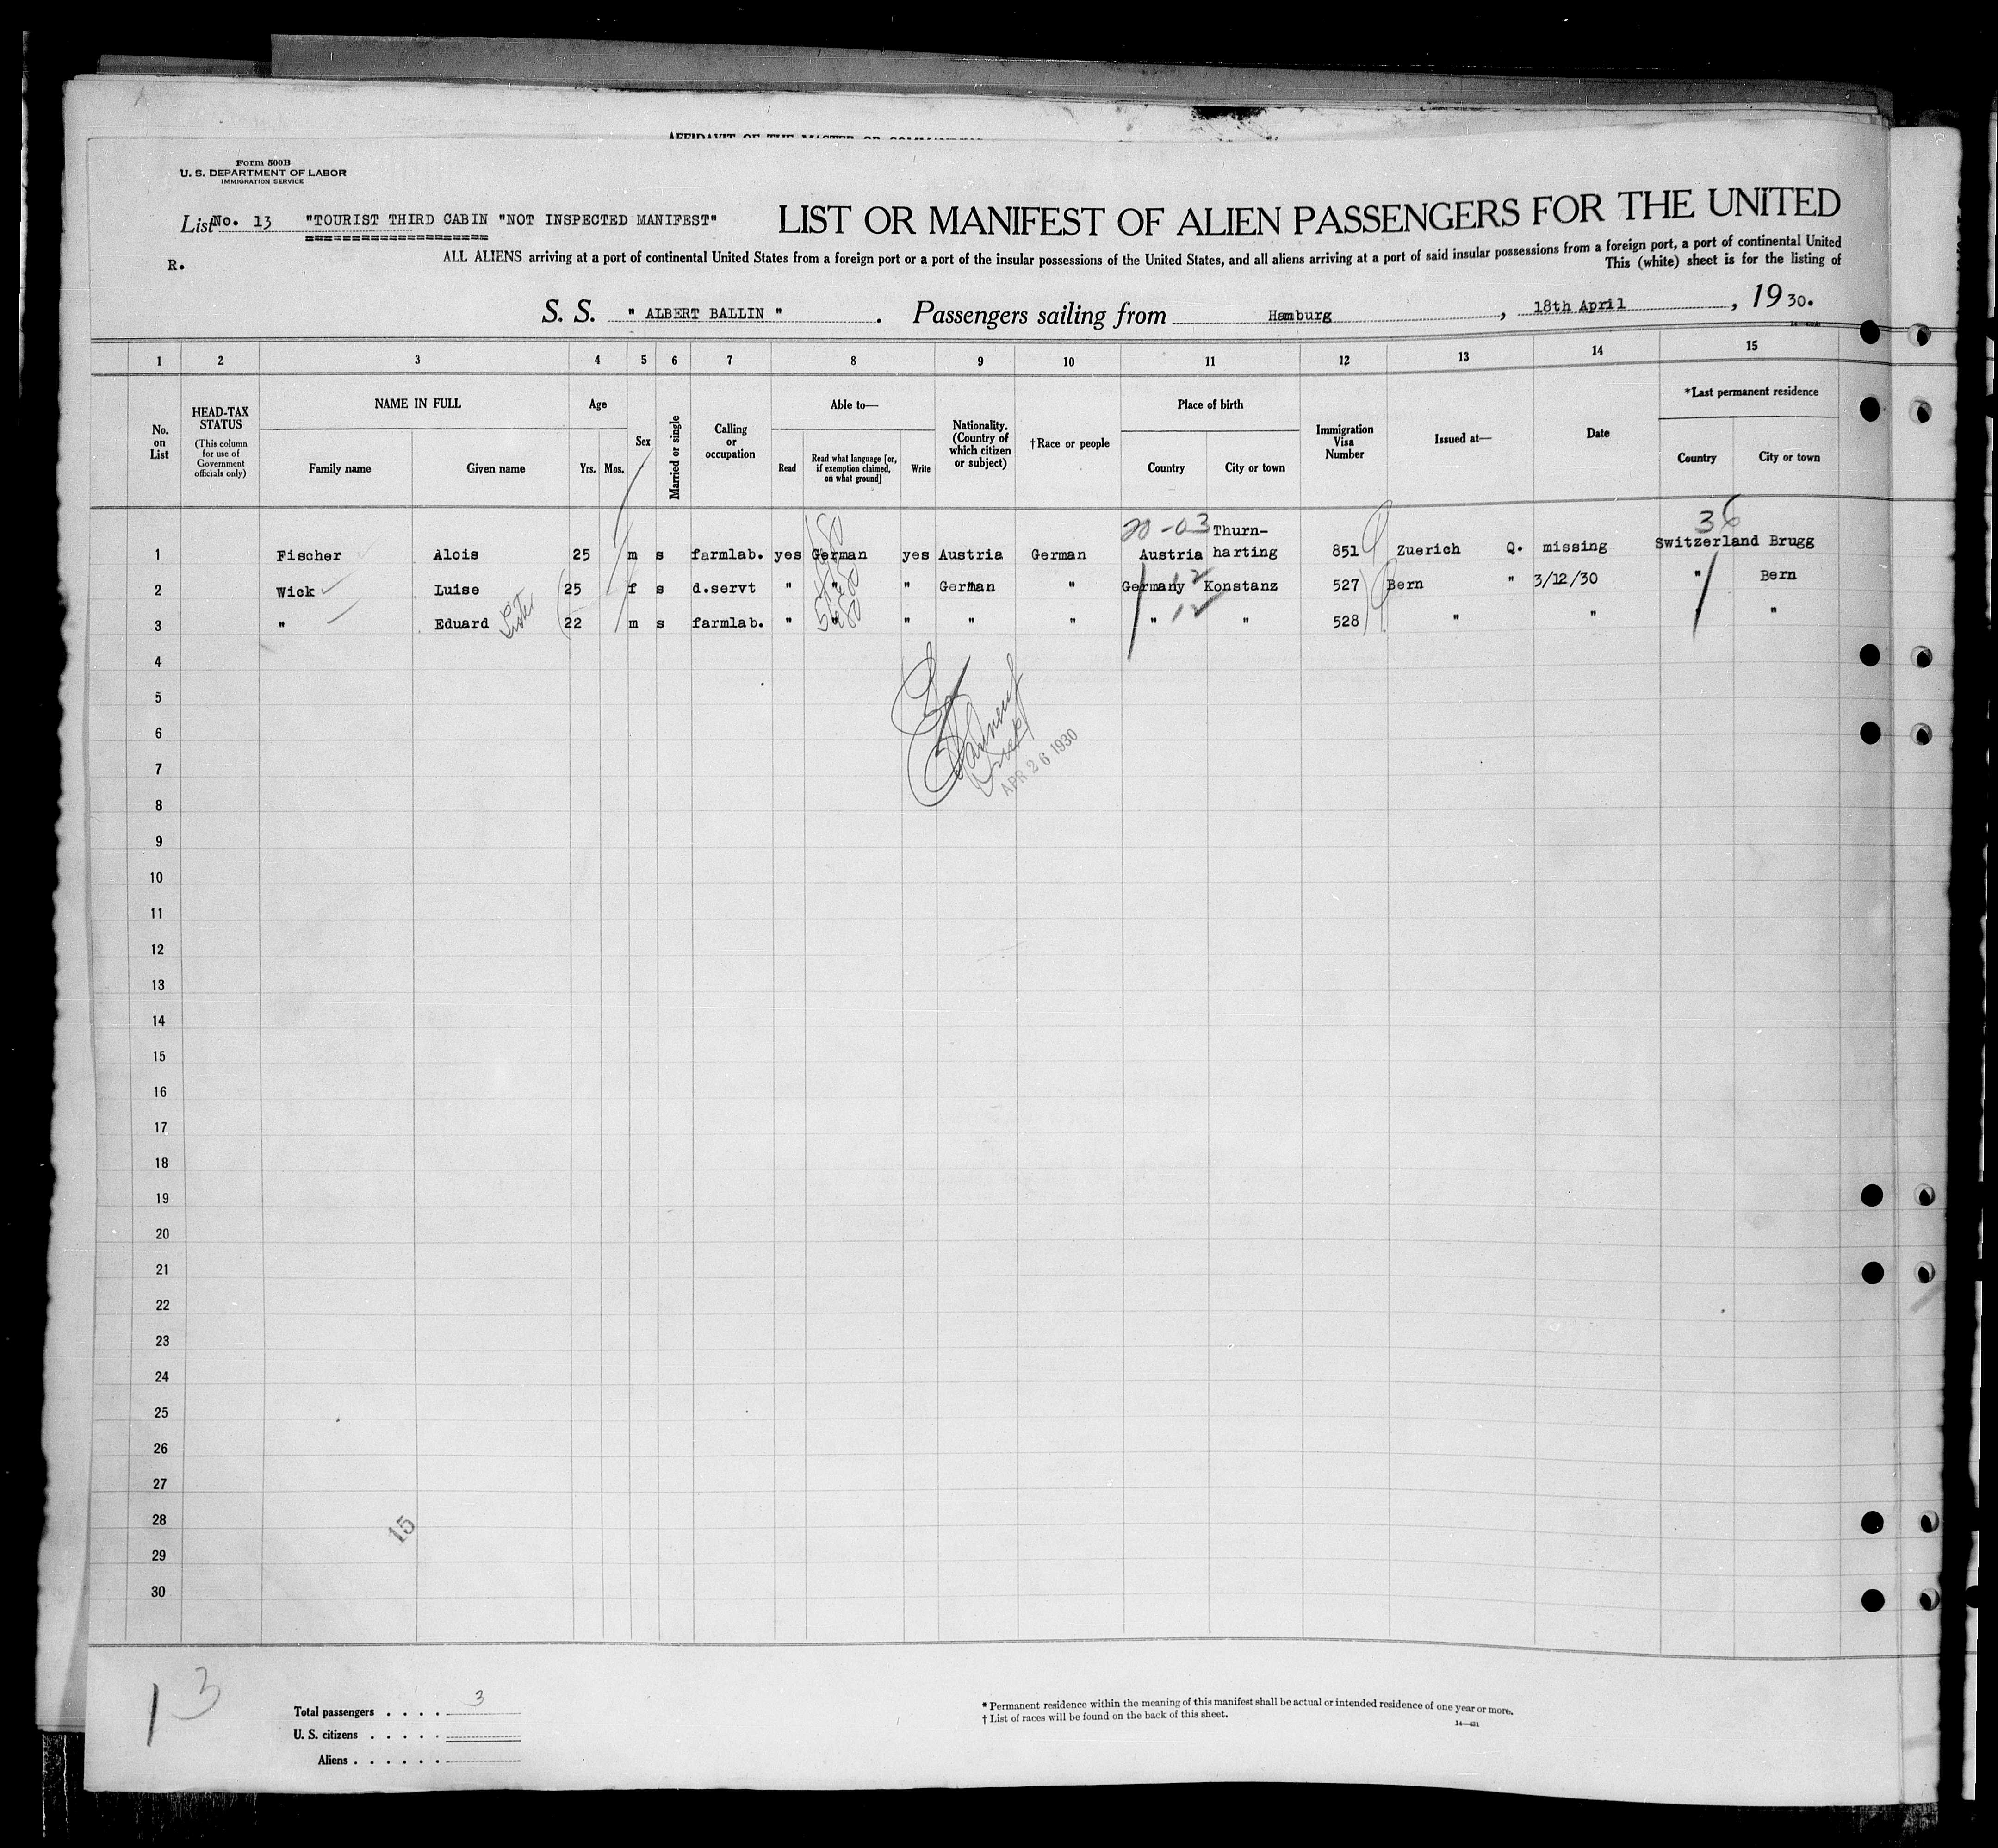 AFFIDAVIT OF THE MASTER OR COMMANDING
Form 500B
U. S. DEPARTMENT OF LABOR
IMMIGRATION SERVICE
List No. 13 "TOURIST THIRD CABIN "NOT INSPECTED MANIFEST"
R.
LIST OR MANIFEST OF ALIEN PASSENGERS FOR THE UNITED
ALL ALIENS arriving at a port of continental United States from a foreign port or a port of the insular possessions of the United States, and all aliens arriving at a port of said insular possessions from a foreign port, a port of continental United
This (white) sheet is for the listing of
S. S. " ALBERT BALLIN " . Passengers sailing from Hamburg , 18th April , 1930.
1 2 3 4 5 6 7 8 9 10 11 12 13 14 15
No. on List
HEAD-TAX STATUS
(This column for use of Government officials only)
NAME IN FULL
Family name Given name
Age
Yrs. Mos.
Sex
Married or single
Calling or occupation
Able to—
Read
Read what language [or, if exemption claimed, on what ground]
Write
Nationality. (Country of which citizen or subject)
†Race or people
Place of birth
Country City or town
Immigration Visa Number
Issued at—
Date
*Last permanent residence
Country City or town
20-03 Thurn- 36
1 Fischer Alois 25 m s farmlab. yes German yes Austria German Austria harting 851 Zuerich Q. missing Switzerland Brugg
2 Wick Luise 25 f s d.servt " " " German " Germany Konstanz 527 Bern " 3/12/30 " Bern
3 " Eduard Sister 22 m s farmlab. " " " " " " " 528 " " " "
4
5
6
7
APR 26 1930
8
9
10
11
12
13
14
15
16
17
18
19
20
21
22
23
24
25
26
27
28
15
29
30
13
Total passengers . . . . 3
U. S. citizens . . . . .
Aliens . . . . . .
* Permanent residence within the meaning of this manifest shall be actual or intended residence of one year or more.
† List of races will be found on the back of this sheet.
14—431